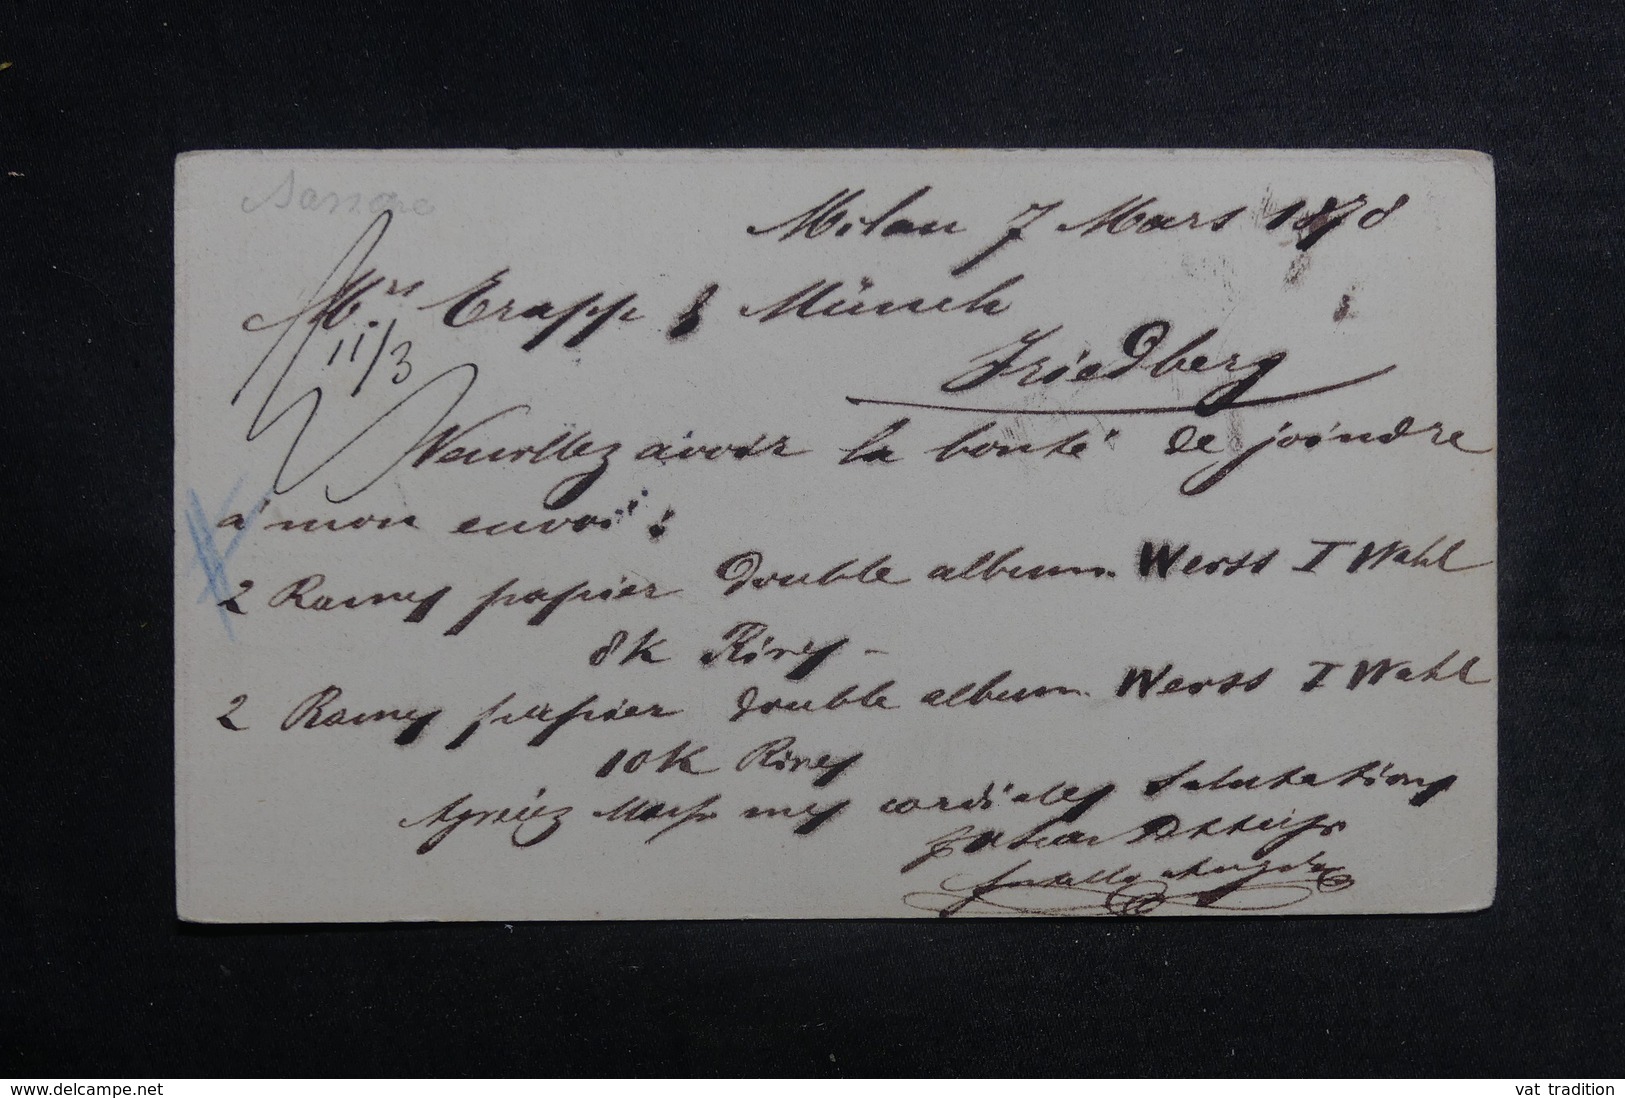 Milan 7 Mars 1878
Mrs Trapp & Münch
11/3
Friedberg
Veuillez avoir la bonté de joindre
à mon envoi :
2 Rames papier double album Weiss I Wahl
8K Rives -
2 Rames papier double album Weiss I Wahl
10K Rives
Agréez Mess mes cordiales salutations
delcampe.net
vat tradition